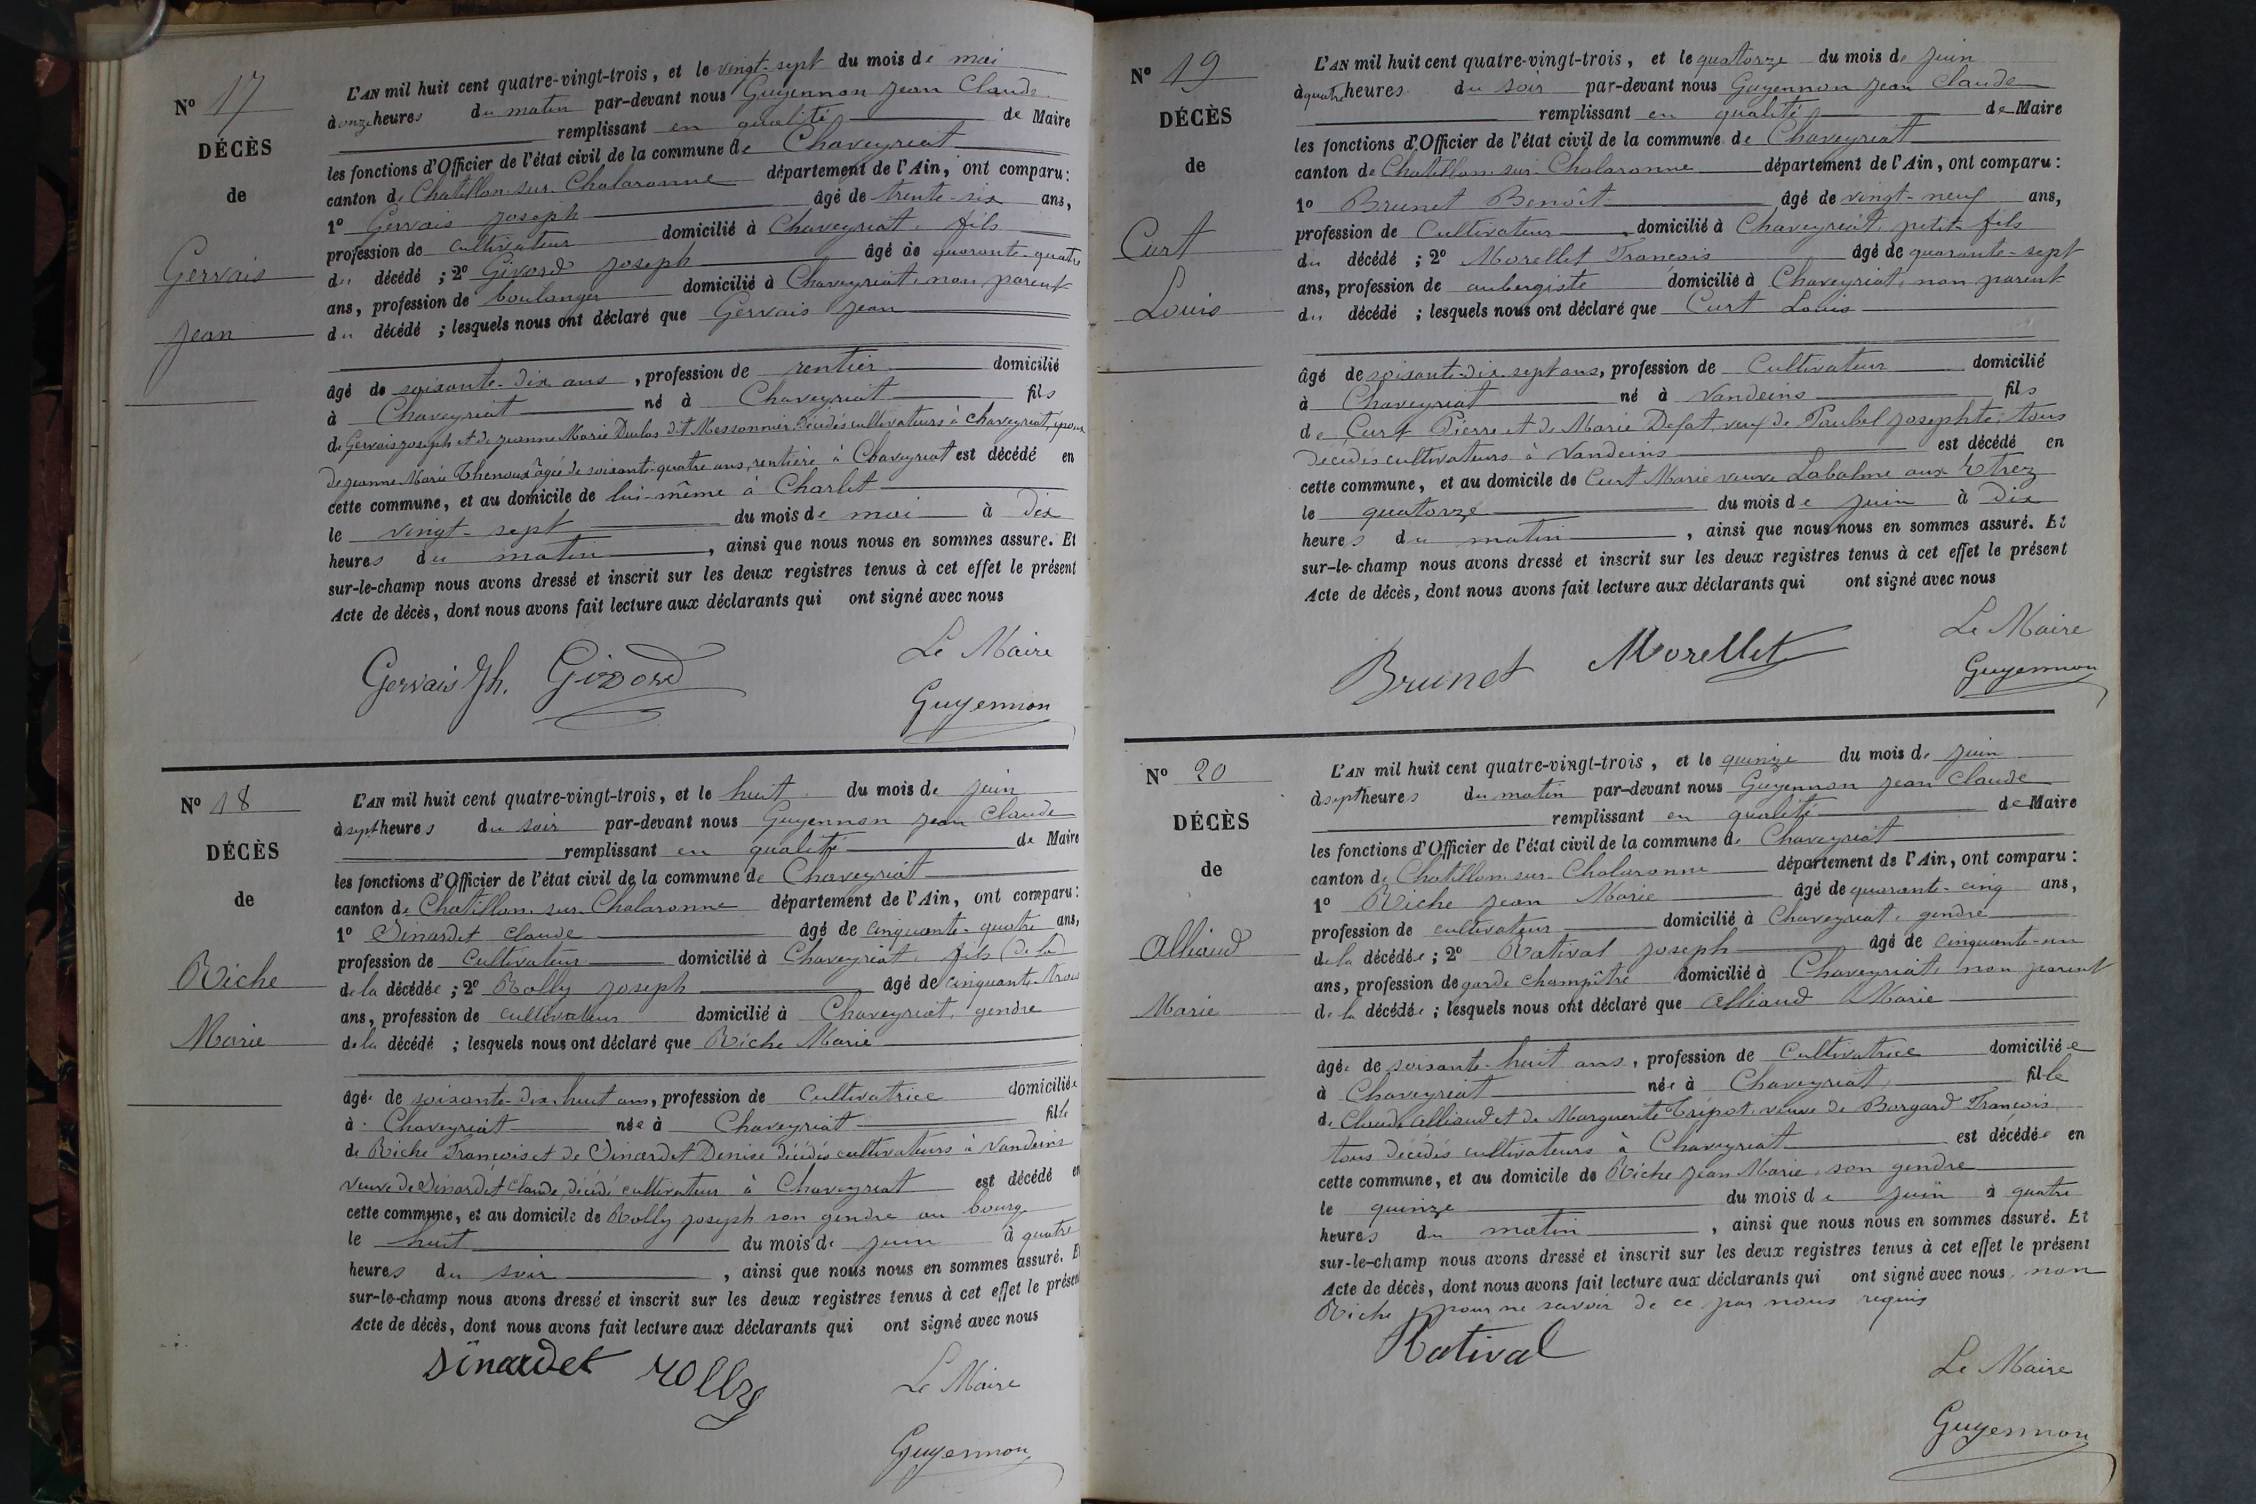 N° 17
DÉCÈS
de
Gervais
Jean
L'AN mil huit cent quatre-vingt-trois, et le vingt-sept du mois de mai
à onze heures du matin par-devant nous Guyennon Jean Claude
remplissant en qualité de Maire
les fonctions d'Officier de l'état civil de la commune de Chaveyriat
canton de Chatillon-sur-Chalaronne département de l'Ain, ont comparu :
1° Gervais Joseph âgé de trente-six ans,
profession de cultivateur domicilié à Chaveyriat, fils
du décédé ; 2° Givord Joseph âgé de quarante-quatre
ans, profession de boulanger domicilié à Chaveyriat, non parent
du décédé ; lesquels nous ont déclaré que Gervais Jean
âgé de soixante-dix ans, profession de rentier domicilié
à Chaveyriat né à Chaveyriat fils
de Gervais Joseph et de Jeanne Marie Duclos dit Messonnier décédés cultivateurs à Chaveyriat, époux
de Jeanne Marie Thenoux âgée de soixante-quatre ans, rentière à Chaveyriat est décédé en
cette commune, et au domicile de lui-même à Charlet
le vingt-sept du mois de mai à dix
heures du matin, ainsi que nous nous en sommes assuré. Et
sur-le-champ nous avons dressé et inscrit sur les deux registres tenus à cet effet le présent
Acte de décès, dont nous avons fait lecture aux déclarants qui ont signé avec nous
Le Maire
Gervais Jh. Givord
Guyennon
N° 18
DÉCÈS
de
Riche
Marie
L'AN mil huit cent quatre-vingt-trois, et le huit du mois de juin
à sept heures du soir par-devant nous Guyennon Jean Claude
remplissant en qualité de Maire
les fonctions d'Officier de l'état civil de la commune de Chaveyriat
canton de Chatillon-sur-Chalaronne département de l'Ain, ont comparu :
1° Sinardet Claude âgé de cinquante-quatre ans,
profession de cultivateur domicilié à Chaveyriat, fils (de la
de la décédée ; 2° Rolly Joseph âgé de cinquante-trois
ans, profession de cultivateur domicilié à Chaveyriat, gendre
de la décédé ; lesquels nous ont déclaré que Riche Marie
âgée de soixante-dix-huit ans, profession de cultivatrice domiciliée
à Chaveyriat née à Chaveyriat fille
de Riche François et de Sinardet Denise décédés cultivateurs à Vandeins
veuve de Sinardet Claude, décédé cultivateur à Chaveyriat est décédé en
cette commune, et au domicile de Rolly Joseph son gendre au bourg
le huit du mois de juin à quatre
heures du soir, ainsi que nous nous en sommes assuré. Et
sur-le-champ nous avons dressé et inscrit sur les deux registres tenus à cet effet le présent
Acte de décès, dont nous avons fait lecture aux déclarants qui ont signé avec nous
sinardet rolly
Le Maire
Guyennon
N° 19
DÉCÈS
de
Curt
Louis
L'AN mil huit cent quatre-vingt-trois, et le quatorze du mois de juin
à quatre heures du soir par-devant nous Guyennon Jean Claude
remplissant en qualité de Maire
les fonctions d'Officier de l'état civil de la commune de Chaveyriat
canton de Chatillon-sur-Chalaronne département de l'Ain, ont comparu :
1° Brunet Benoît âgé de vingt-neuf ans,
profession de cultivateur domicilié à Chaveyriat, petit-fils
du décédé ; 2° Morellet François âgé de quarante-sept
ans, profession de aubergiste domicilié à Chaveyriat, non parent
du décédé ; lesquels nous ont déclaré que Curt Louis
âgé de soixante-dix-sept ans, profession de cultivateur domicilié
à Chaveyriat né à Vandeins fils
de Curt Pierre et de Marie Defat, veuf de Paubel Josephte, tous
décédés cultivateurs à Vandeins est décédé en
cette commune, et au domicile de Curt Marie veuve Labalme aux Etrez
le quatorze du mois de juin à dix
heures du matin, ainsi que nous nous en sommes assuré. Et
sur-le-champ nous avons dressé et inscrit sur les deux registres tenus à cet effet le présent
Acte de décès, dont nous avons fait lecture aux déclarants qui ont signé avec nous
Le Maire
Brunet Morellet
Guyennon
N° 20
DÉCÈS
de
Alliaud
Marie
L'AN mil huit cent quatre-vingt-trois, et le quinze du mois de juin
à sept heures du matin par-devant nous Guyennon Jean Claude
remplissant en qualité de Maire
les fonctions d'Officier de l'état civil de la commune de Chaveyriat
canton de Chatillon-sur-Chalaronne département de l'Ain, ont comparu :
1° Riche Jean Marie âgé de quarante-cinq ans,
profession de cultivateur domicilié à Chaveyriat, gendre
de la décédée ; 2° Rativat Joseph âgé de cinquante-un
ans, profession de garde champêtre domicilié à Chaveyriat, non parent
de la décédée ; lesquels nous ont déclaré que Alliaud Marie
âgée de soixante-huit ans, profession de cultivatrice domiciliée
à Chaveyriat née à Chaveyriat, fille
de Claude Alliaud et de Marguerite Tripot, veuve de Borgard François
tous décédés cultivateurs à Chaveyriat est décédée en
cette commune, et au domicile de Riche Jean Marie, son gendre
le quinze du mois de juin à quatre
heures du matin, ainsi que nous nous en sommes assuré. Et
sur-le-champ nous avons dressé et inscrit sur les deux registres tenus à cet effet le présent
Acte de décès, dont nous avons fait lecture aux déclarants qui ont signé avec nous, non
Riche, pour ne savoir de ce par nous requis
Rativat
Le Maire
Guyennon